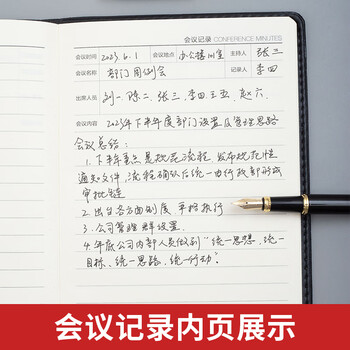 会议记录 CONFERENCE MINUTES
会议时间 2023.6.1 会议地点 办公楼111室 主持人 张三
会议名称 部门周例会 记录人 李四
出席人员 刘一、陈二、张三、李四、王五、赵六
会议内容 2023年下半年度部门设置及管理思路
会议总结:
1.下半年重点是规范流程,发布规范性
通知文件,流程确认后统一由行政部形成
审批链
2.出台各方面制度,严格执行
3.公司管理群设置
4.年底公司内部人员做到“统一思想、统一
目标、统一思路、统一行动”。
会议记录内页展示